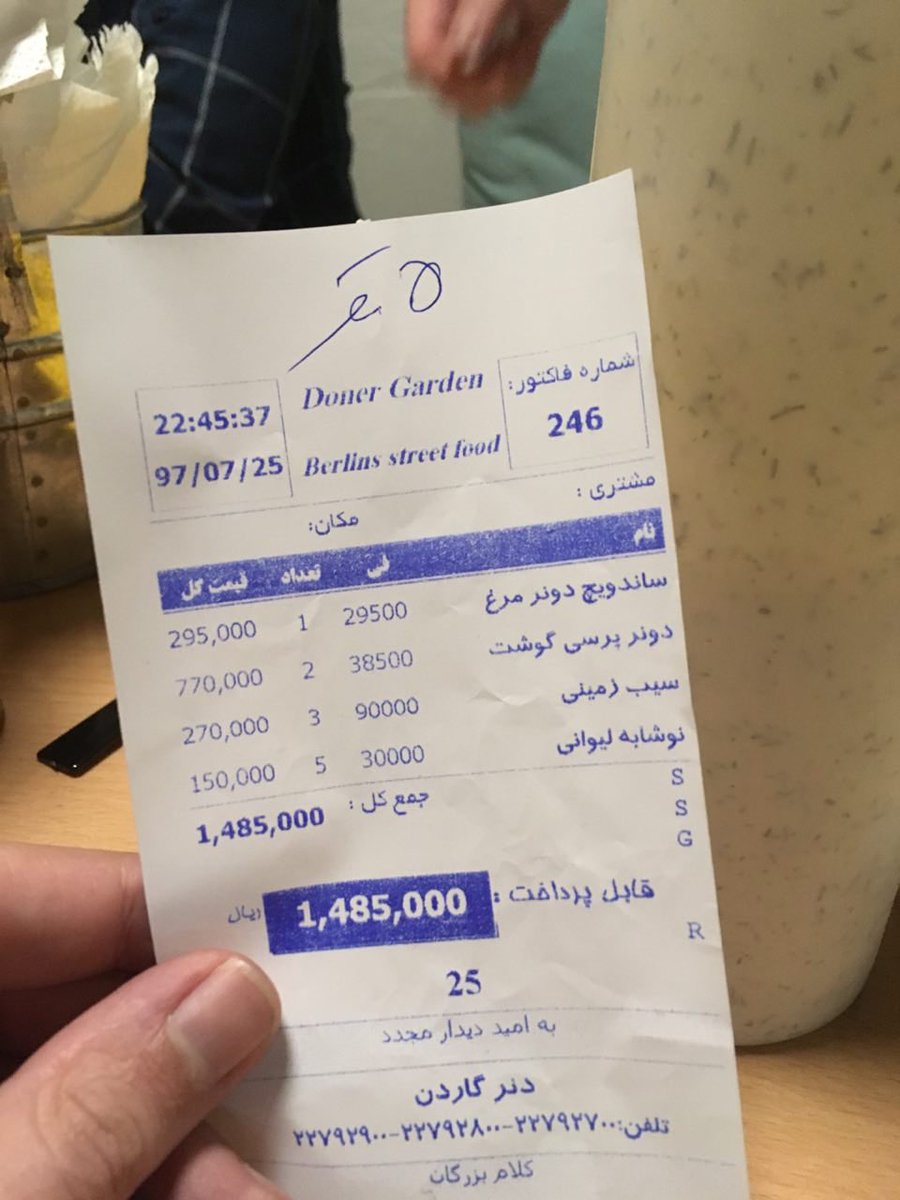 ۵ نفر
شماره فاکتور:
246
Doner Garden
Berlins street food
22:45:37
97/07/25
مشتری :
مکان:
نام فی تعداد قیمت کل
ساندویچ دونر مرغ 29500 1 295,000
دونر پرسی گوشت 38500 2 770,000
سیب زمینی 90000 3 270,000
نوشابه لیوانی 30000 5 150,000
S
S
G
جمع کل : 1,485,000
قابل پرداخت : 1,485,000 ریال
R
25
به امید دیدار مجدد
دنر گاردن
تلفن:۲۲۷۹۲۷۰۰-۲۲۷۹۲۸۰۰-۲۲۷۹۲۹۰۰
کلام بزرگان